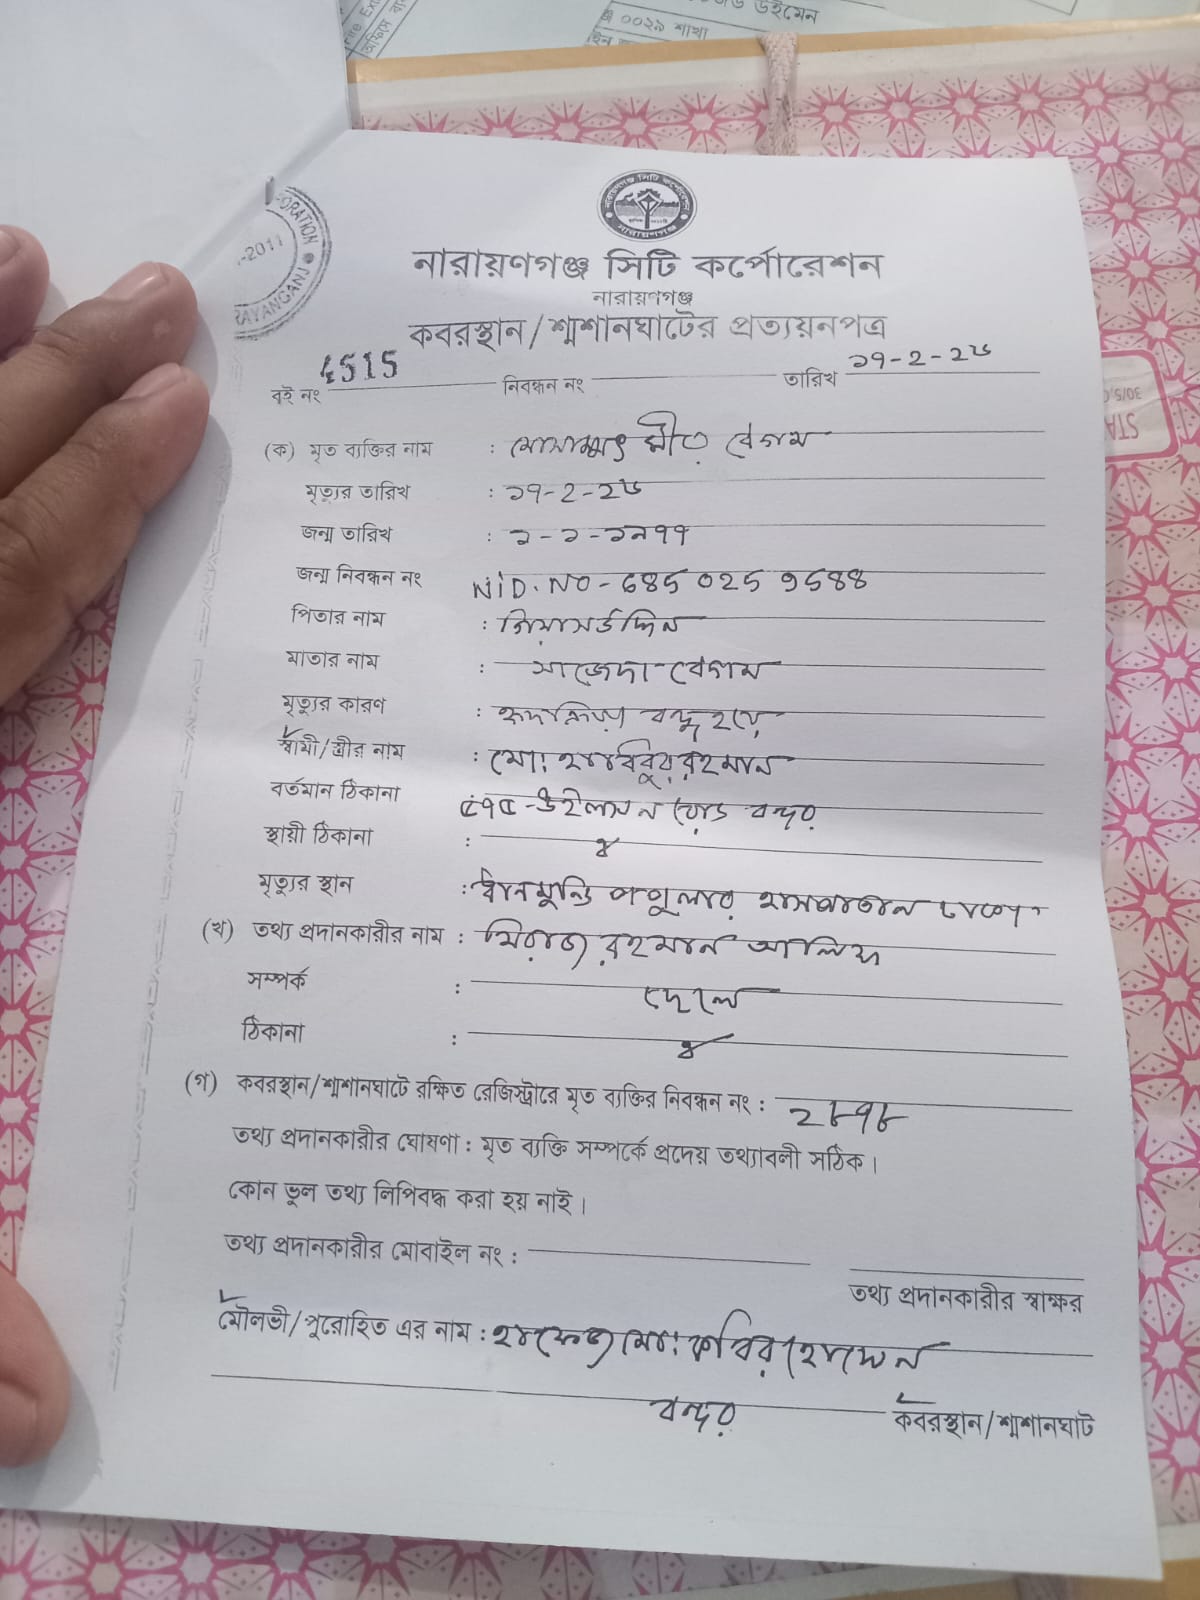 উইমেন
০০২৯ শাখা
ORATION
-2011
RAYANGANJ
নারায়ণগঞ্জ সিটি কর্পোরেশন
নারায়ণগঞ্জ
নারায়ণগঞ্জ সিটি কর্পোরেশন
নারায়ণগঞ্জ
কবরস্থান/শ্মশানঘাটের প্রত্যয়নপত্র
বই নং 4515 নিবন্ধন নং তারিখ ১৭-২-২৬
(ক) মৃত ব্যক্তির নাম : মোসাম্মৎ বেগম
মৃত্যুর তারিখ : ১৭-২-২৬
জন্ম তারিখ : ১-১-১৯৭৭
জন্ম নিবন্ধন নং NID. NO - 685 025 9588
পিতার নাম :
মাতার নাম : সাজেদা বেগম
মৃত্যুর কারণ : হৃদক্রিয়া বন্ধ হয়ে
স্বামী/স্ত্রীর নাম : মো: হাবিবুর রহমান
বর্তমান ঠিকানা ৫৭৫-উইলসন রোড বন্দর
স্থায়ী ঠিকানা : ঐ
মৃত্যুর স্থান : ধানমন্ডি পপুলার হাসপাতাল ঢাকা
(খ) তথ্য প্রদানকারীর নাম : মিরাজ রহমান আলিফ
সম্পর্ক : ছেলে
ঠিকানা : ঐ
(গ) কবরস্থান/শ্মশানঘাটে রক্ষিত রেজিস্ট্রারে মৃত ব্যক্তির নিবন্ধন নং : ২৮৭৮
তথ্য প্রদানকারীর ঘোষণা : মৃত ব্যক্তি সম্পর্কে প্রদেয় তথ্যাবলী সঠিক।
কোন ভুল তথ্য লিপিবদ্ধ করা হয় নাই।
তথ্য প্রদানকারীর মোবাইল নং :
তথ্য প্রদানকারীর স্বাক্ষর
মৌলভী/পুরোহিত এর নাম : হাফেজ মো: কবির হোসেন
বন্দর কবরস্থান/শ্মশানঘাট